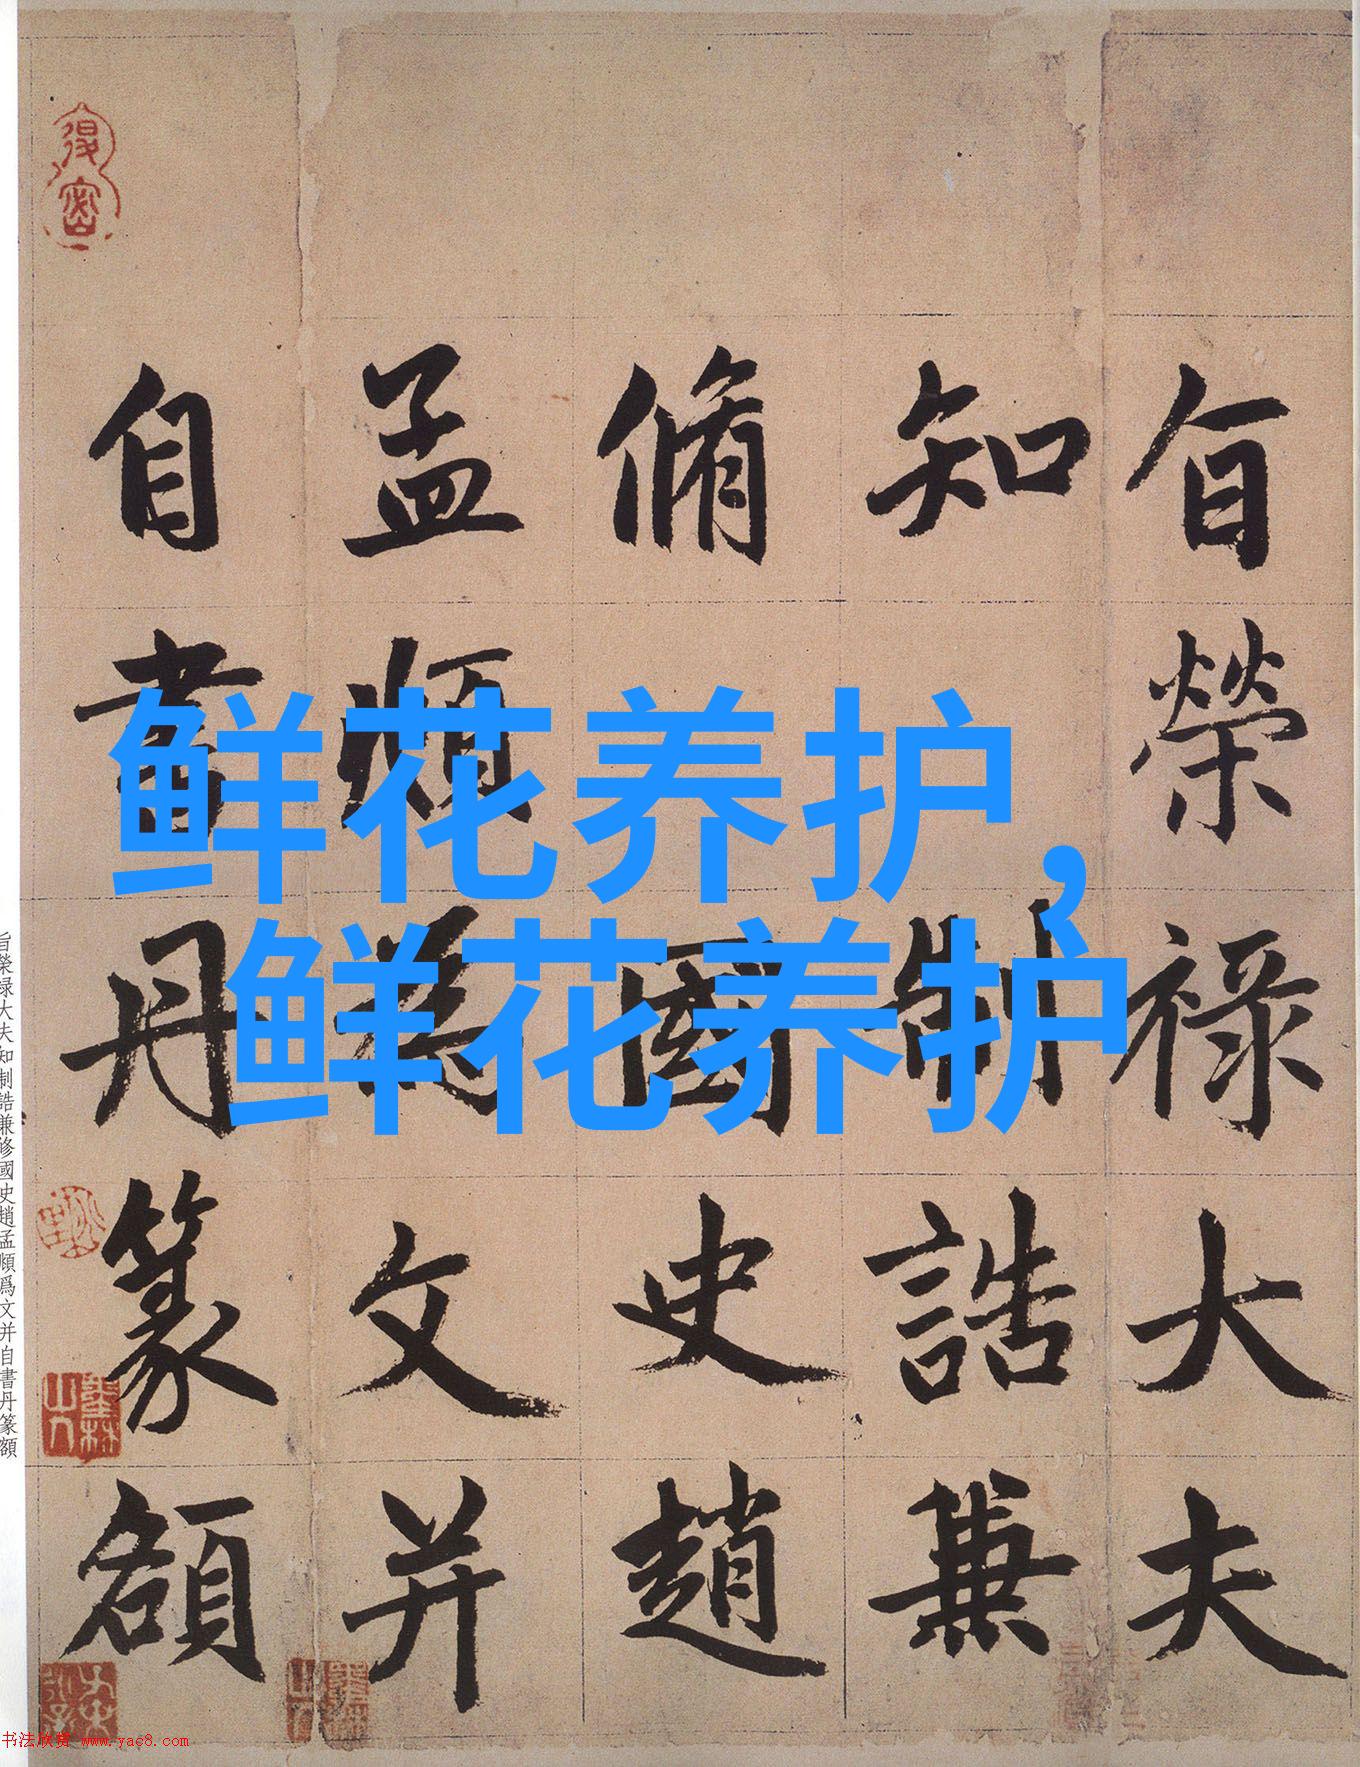 旨榮祿大夫
知制誥兼
脩國史趙
孟頫為文并
自書丹篆額
鲜花养护，
鲜花养护
旨榮祿大夫知制誥兼修國史趙孟頫爲文并自書丹篆額
书法欣赏 www.yac8.com